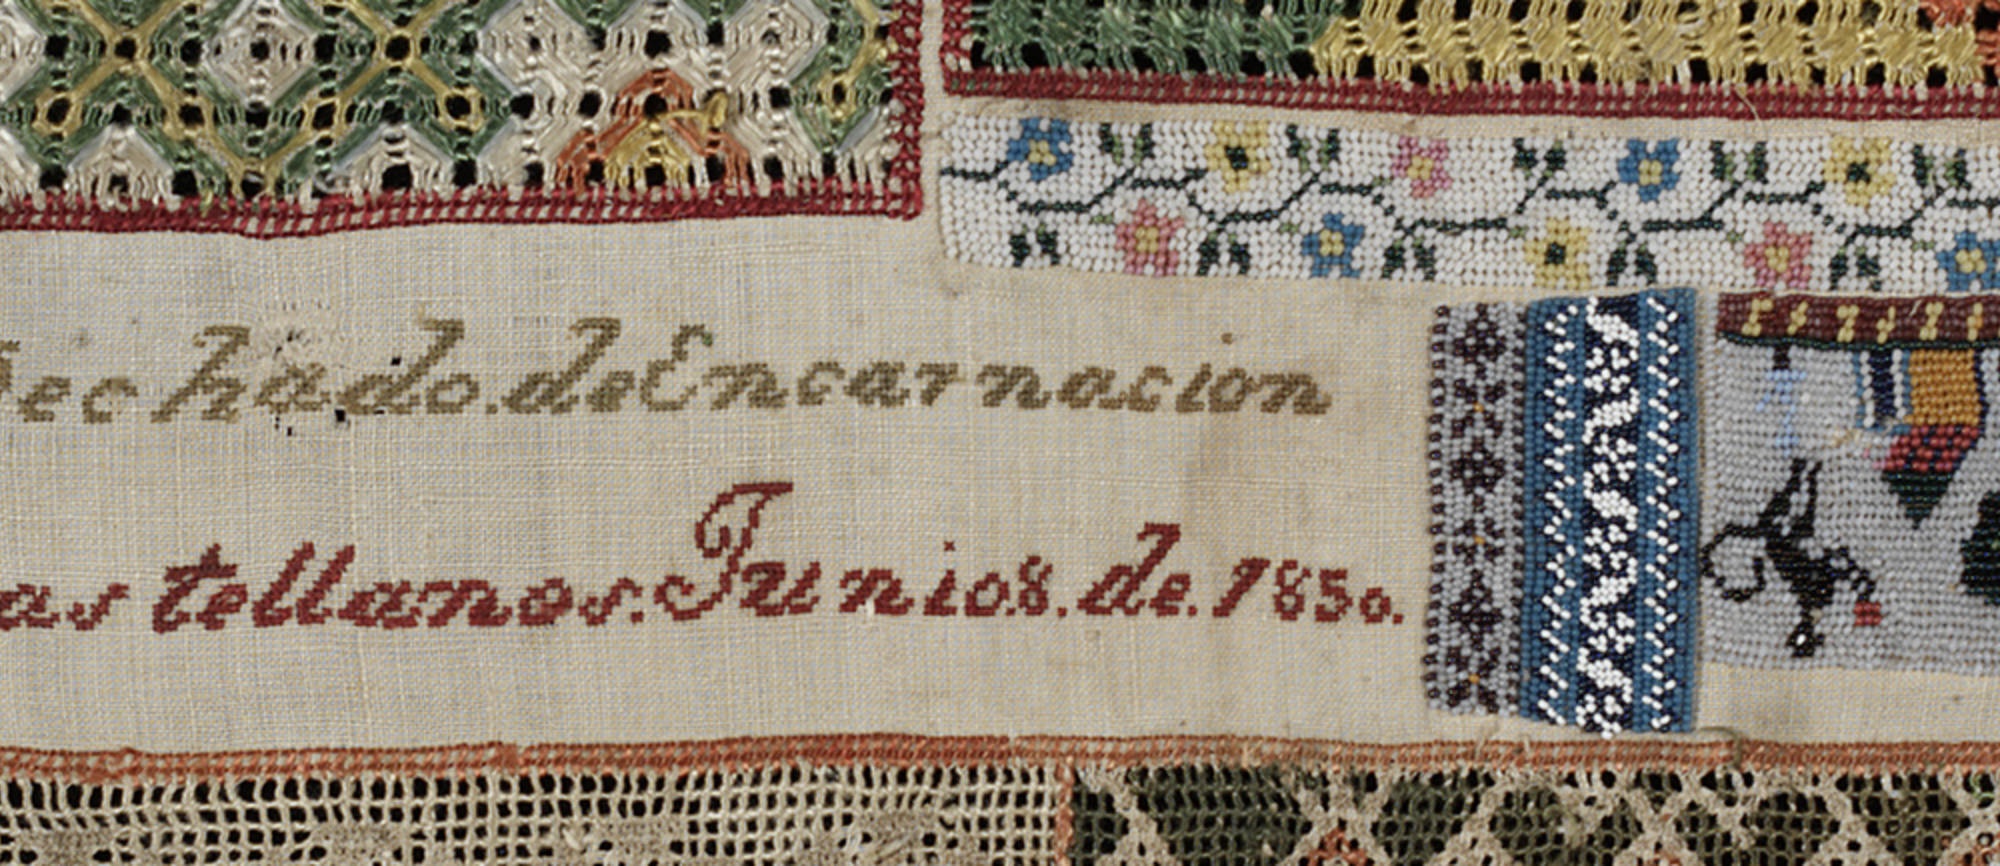 Dechado.de Encarnacion
astellanos. Junio8.de.1850.